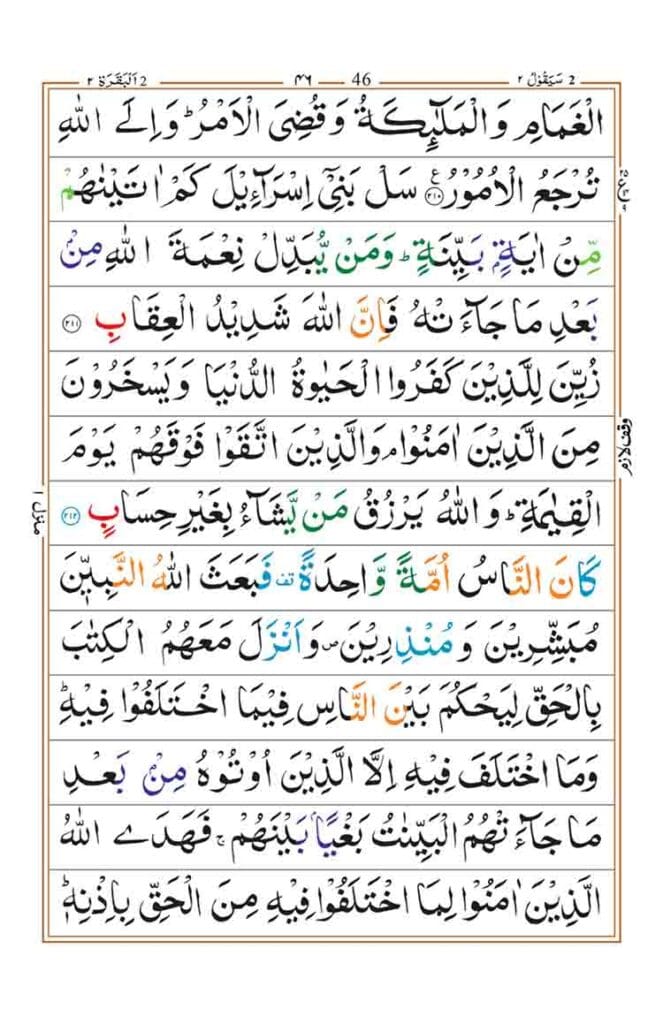 2 سَيَقُوْلُ ٢ 46 ۴۶ 2 اَلْبَقَرَة ٢
الْغَمَامِ وَالْمَلٰٓئِكَةُ وَقُضِىَ الْاَمْرُ ؕ وَاِلَى اللّٰهِ
تُرْجَعُ الْاُمُوْرُ ﴿۲۱۰﴾ ع سَلْ بَنِىْٓ اِسْرَآءِيْلَ كَمْ اٰتَيْنٰهُمْ
مِّنْ اٰيَةٍۭ بَيِّنَةٍ ؕ وَمَنْ يُّبَدِّلْ نِعْمَةَ اللّٰهِ مِنْۢ
بَعْدِ مَا جَآءَتْهُ فَاِنَّ اللّٰهَ شَدِيْدُ الْعِقَابِ ﴿۲۱۱﴾
زُيِّنَ لِلَّذِيْنَ كَفَرُوا الْحَيٰوةُ الدُّنْيَا وَيَسْخَرُوْنَ
وقف لازم
مِنَ الَّذِيْنَ اٰمَنُوْا ۘ وَالَّذِيْنَ اتَّقَوْا فَوْقَهُمْ يَوْمَ
الْقِيٰمَةِ ؕ وَاللّٰهُ يَرْزُقُ مَنْ يَّشَآءُ بِغَيْرِ حِسَابٍ ﴿۲۱۲﴾
منزل ١
كَانَ النَّاسُ اُمَّةً وَّاحِدَةً قف فَبَعَثَ اللّٰهُ النَّبِيّٖنَ
مُبَشِّرِيْنَ وَمُنْذِرِيْنَ ص وَاَنْزَلَ مَعَهُمُ الْكِتٰبَ
بِالْحَقِّ لِيَحْكُمَ بَيْنَ النَّاسِ فِيْمَا اخْتَلَفُوْا فِيْهِ ؕ
وَمَا اخْتَلَفَ فِيْهِ اِلَّا الَّذِيْنَ اُوْتُوْهُ مِنْۢ بَعْدِ
مَا جَآءَتْهُمُ الْبَيِّنٰتُ بَغْيًۢا بَيْنَهُمْ ۚ فَهَدَى اللّٰهُ
الَّذِيْنَ اٰمَنُوْا لِمَا اخْتَلَفُوْا فِيْهِ مِنَ الْحَقِّ بِاِذْنِهٖ ؕ